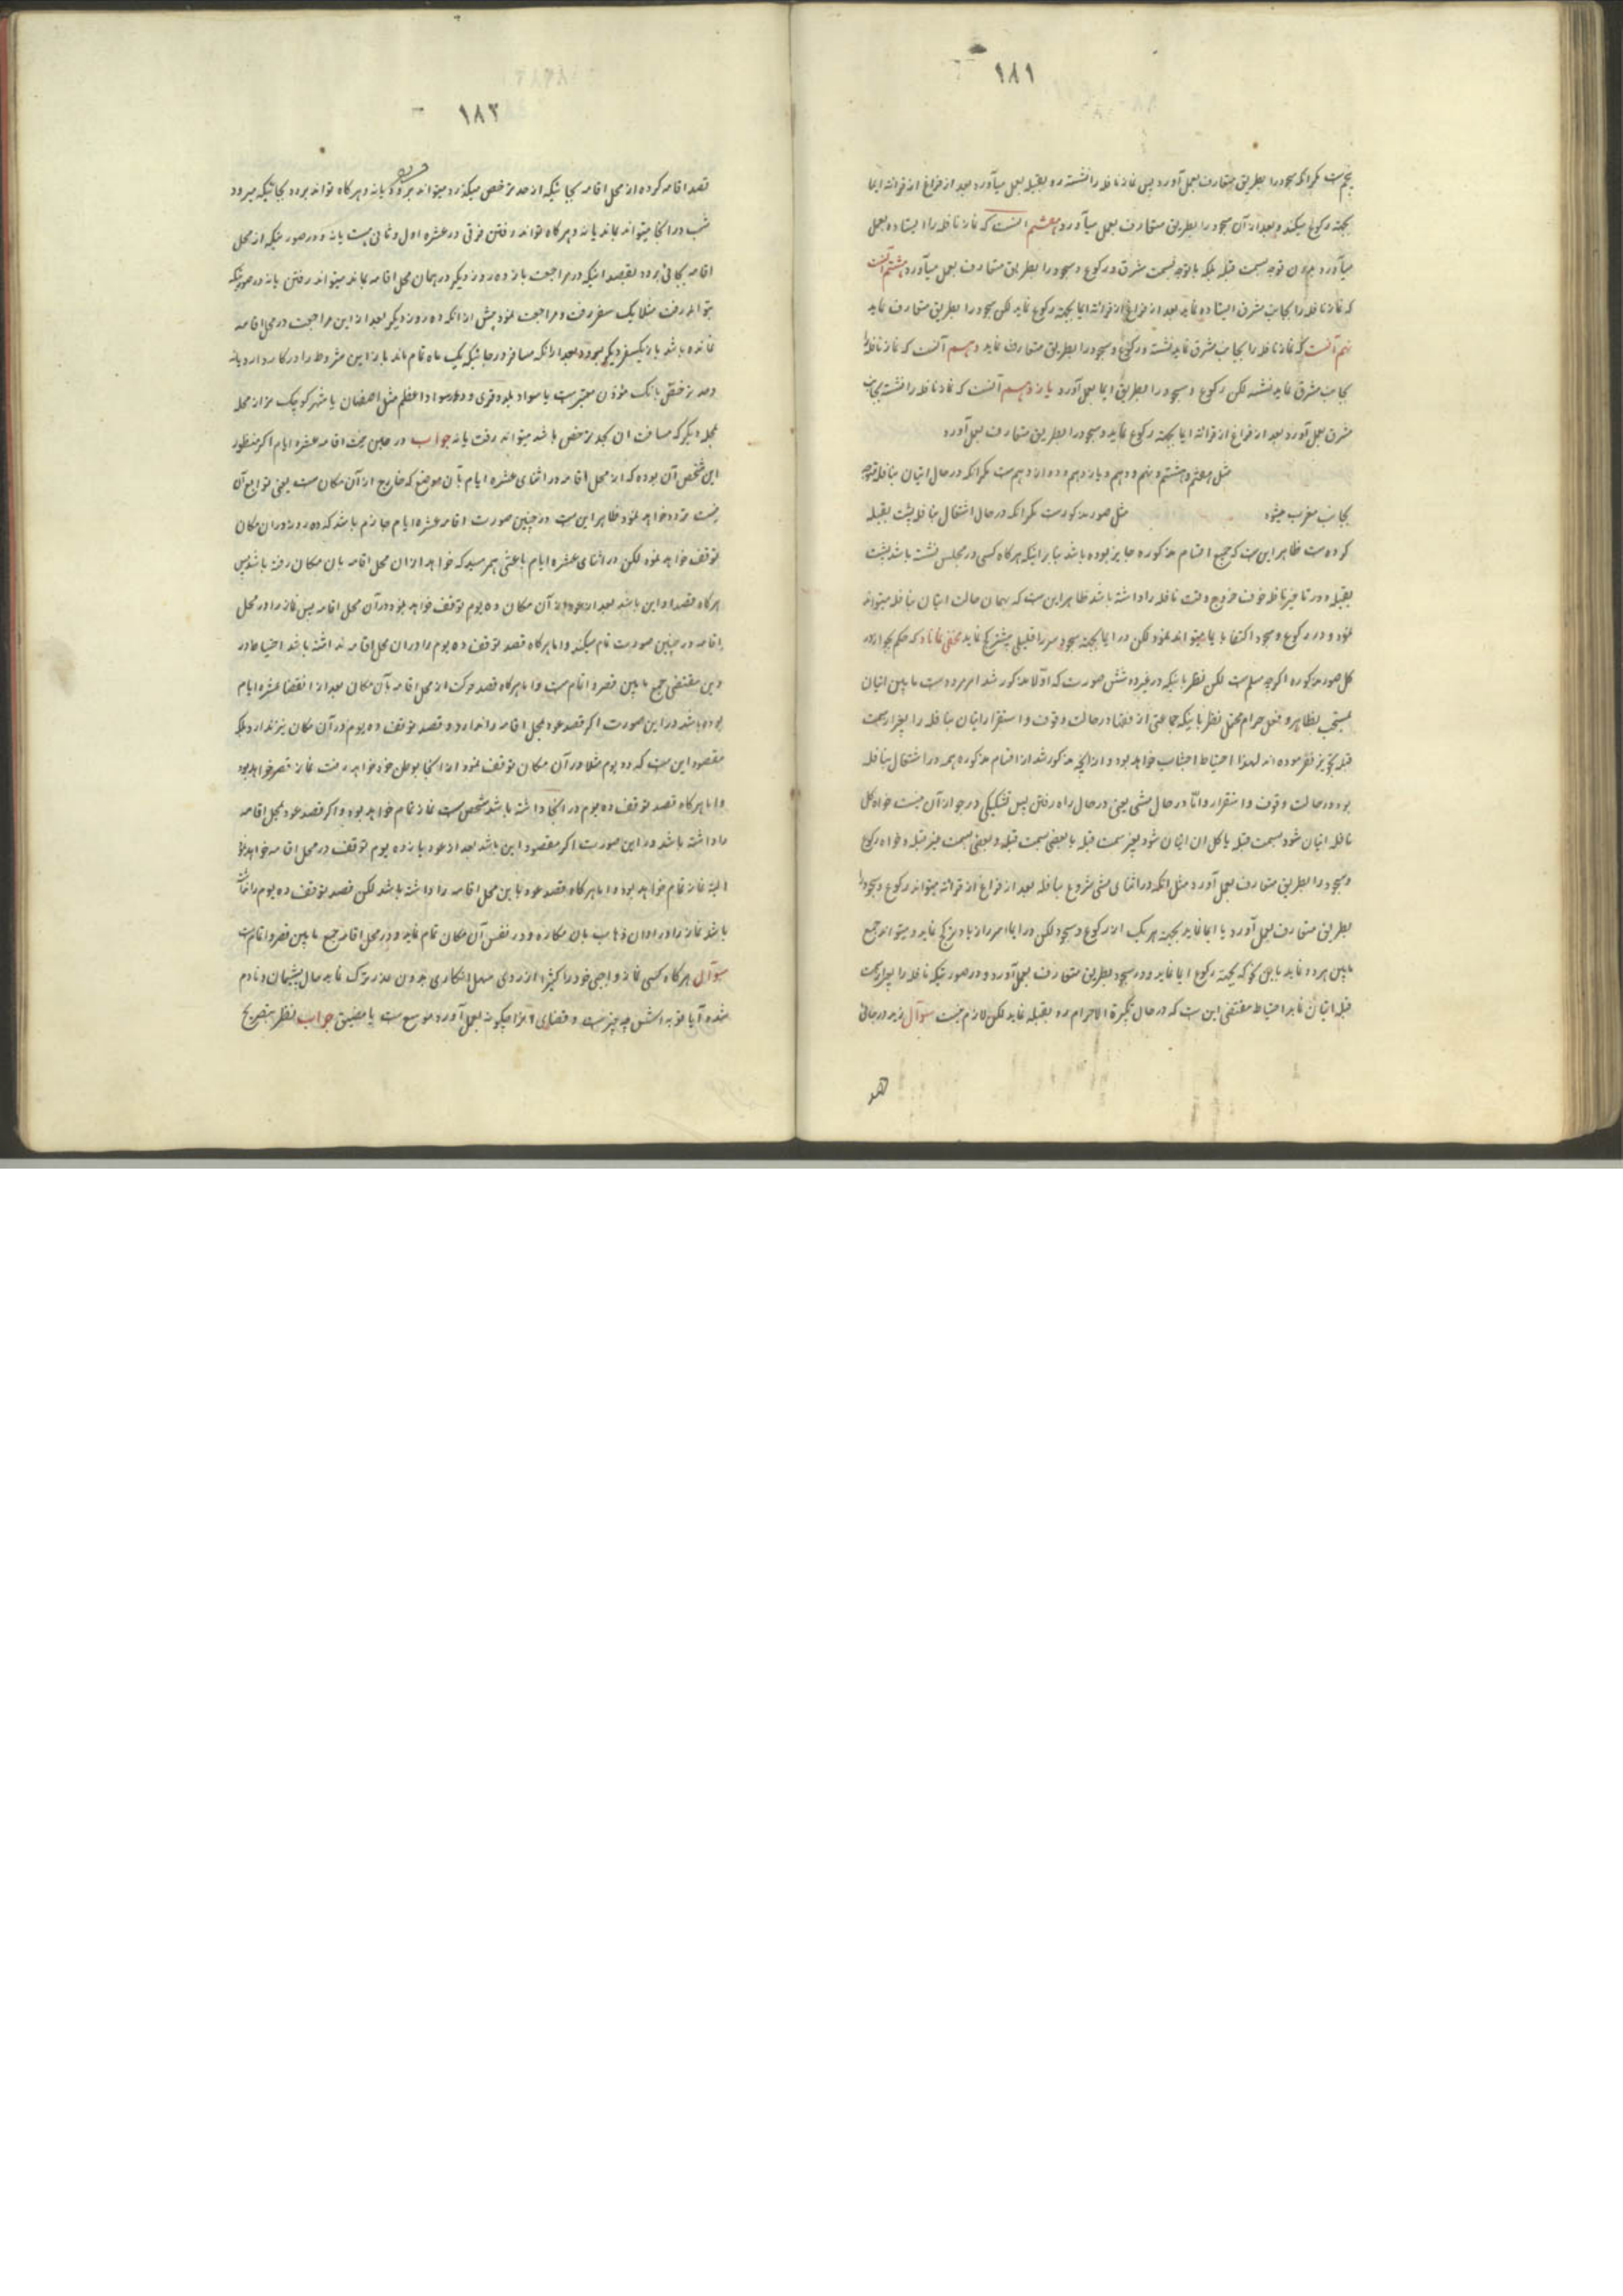 ۱۸۱
پنجم است مگر آنکه سجود را بطریق متعارف بعمل آورد پس نماز نافله را نشسته رو بقبله بعمل میآورد بعد از فراغ از قرائة ایما
بجهة رکوع میکند و بعد از آن سجود را بطریق متعارف بعمل میآورد هفتم آنست که نماز نافله را ایستاده بعمل
میآورد بدون توجه بسمت قبله بلکه با توجه بسمت مشرق و رکوع و سجود را بطریق متعارف بعمل میآورد هشتم آنست
که نماز نافله را بجانب مشرق ایستاده نماید بعد از فراغ از قرائة ایما بجهة رکوع نماید لکن سجود را بطریق متعارف نماید
نهم آنست که نماز نافله را بجانب مشرق نماید نشسته و رکوع و سجود را بطریق متعارف نماید دهم آنست که نماز نافله را
بجانب مشرق نماید نشسته لکن رکوع و سجود را بطریق ایما بعمل آورد یازدهم آنست که نماز نافله را نشسته بجانب
مشرق بعمل آورد بعد از فراغ از قرائة ایما بجهة رکوع نماید و سجود را بطریق متعارف بعمل آورد
مثل هفتم و هشتم و نهم و دهم و یازدهم و دوازدهم است مگر آنکه در حال اتیان بنافله توجه
بجانب مغرب میشود مثل صور مذکور است مگر آنکه در حال اشتغال بنافله پشت بقبله
کرده است ظاهر این است که جمیع اقسام مذکوره جایز بوده باشد بنابر اینکه هرگاه کسی در مجلس نشسته باشد پشت
بقبله و در تاخیر نافله خوف خروج وقت نافله را داشته باشد ظاهر این است که بهمان حالت اتیان بنافله میتواند
نمود و در رکوع و سجود اکتفا بایما میتواند نمود لکن در ایما بجهة سجود سر را قلیلی بیشتر کج نماید مخفی نماناد که حکم بجواز در
کل صور مذکوره اگرچه مسلم است لکن نظر باینکه در غیر دو شش صورت که اوّلا مذکور شد امر مردد است ما بین اتیان
بمستحب بظاهر و فعل حرام محتمل نظر باینکه جماعتی از فقها در حالت وقوف و استقرار اتیان بنافله را بغیر سمت
قبله تجویز نفرموده اند لهذا احتیاط اجتناب خواهد بود و از آنچه مذکور شد از اقسام مذکوره همه در اشتغال بنافله
بود در حالت وقوف و استقرار و امّا در حال مشی یعنی در حال راه رفتن پس تشکیکی در جواز آن نیست خواه کل
نافله اتیان شود بسمت قبله یا کل آن اتیان شود بغیر سمت قبله یا بعضی بسمت قبله و بعضی بسمت غیر قبله و خواه رکوع
و سجود را بطریق متعارف بعمل آورد مثل آنکه در اثنای مشی شروع بنافله بعد از فراغ از قرائة میتواند رکوع و سجود را
بطریق متعارف بعمل آورد یا ایما نماید بجهة هر یک از رکوع و سجود لکن در ایما سر را زیادتر کج نماید و میتواند جمع
مابین هر دو نماید باین نحو که بجهة رکوع ایما نماید و در سجود بطریق متعارف بعمل آورد و در صورتیکه نافله را بغیر سمت
قبله اتیان نماید احتیاط مقتضی این است که در حال تکبیرة الاحرام رو بقبله نماید لکن لازم نیست سؤال زید در جائی
قصد
۱۸۲
قصد اقامه کرده از محل اقامه بجائیکه از حد ترخص میگذرد میتواند برود یا نه و هرگاه تواند برود بجائیکه میرود
شب در آنجا میتواند بماند یا نه و هرگاه تواند رفتن فرقی در عشره اول و ثانی هست یا نه و در صورتیکه از محل
اقامه بجائی برود بقصد اینکه در مراجعت باز ده روز دیگر در همان محل اقامه بماند میتواند رفتن یا نه در صورتیکه
بتواند رفت مثلا یک سفر رفت و مراجعت نمود پیش از آنکه ده روز دیگر بعد از این مراجعت در محل اقامه
مانده باشد باز یکسفر دیگر میرود بعد از آنکه مسافر در جائیکه یک ماه تمام ماند باز این شروط را در کار دارد یا نه
و حد ترخص بانک مؤذن معتبر است یا سواد بلد و قری و در سواد اعظم مثل اصفهان یا شهر کوچک تر از محله
بمحله دیگر که مسافت آن بحد ترخص باشد میتواند رفت یا نه جواب در حین نیت اقامه عشره ایام اگر منظور
این شخص آن بوده که از محل اقامه در اثنای عشره ایام بآن موضع که خارج از آن مکان است یعنی توابع آن
نیست تردد خواهد نمود ظاهر این است در چنین صورت اقامه عشره ایام جازم باشد که ده روز در آن مکان
توقف خواهد نمود لکن در اثنای عشره ایام باعثی بهمرسید که خواهد از آن محل اقامه بآن مکان رفته باشد پس
هرگاه قصد او این باشد بعد از عود از آن مکان ده یوم توقف خواهد نمود در آن محل اقامه پس نماز را در محل
اقامه در چنین صورت تمام میکند و اما هرگاه قصد توقف ده یوم را در آن محل اقامه نداشته باشد احتیاط در
دین مقتضی جمع ما بین قصر و اتمام است و اما هرگاه قصد حرکت از محل اقامه بآن مکان بعد از انقضا عشره ایام
بوده باشد در این صورت اگر قصد عود بمحل اقامه را ندارد و قصد توقف ده یوم در آن مکان نیز ندارد بلکه
مقصود این است که دو یوم مثلا در آن مکان توقف نمود از آنجا بوطن خود خواهد رفت نماز قصر خواهد بود
و اما هرگاه قصد توقف ده یوم در آنجا داشته باشد مشخص است نماز تمام خواهد بود و اگر قصد عود بمحل اقامه
را داشته باشد در این صورت اگر مقصود این باشد بعد از عود باز ده یوم توقف در محل اقامه خواهد نمود
البته نماز تمام خواهد بود و اما هرگاه قصد عود باین محل اقامه را داشته باشد لکن قصد توقف ده یوم را نداشته
باشد نماز را در اوان ذهاب بآن مکان و در نفس آن مکان تمام نماید و در محل اقامه جمع ما بین قصر و اتمام است
سؤال هرگاه کسی نماز واجبی خود را کثیرا از روی سهل انکاری بدون عذر ترک نماید حال پشیمان و نادم
شده آیا توبه اش چه چیز است و قضای آنرا چگونه بعمل آورد موسع است یا مضیق جواب نظر بتصریح